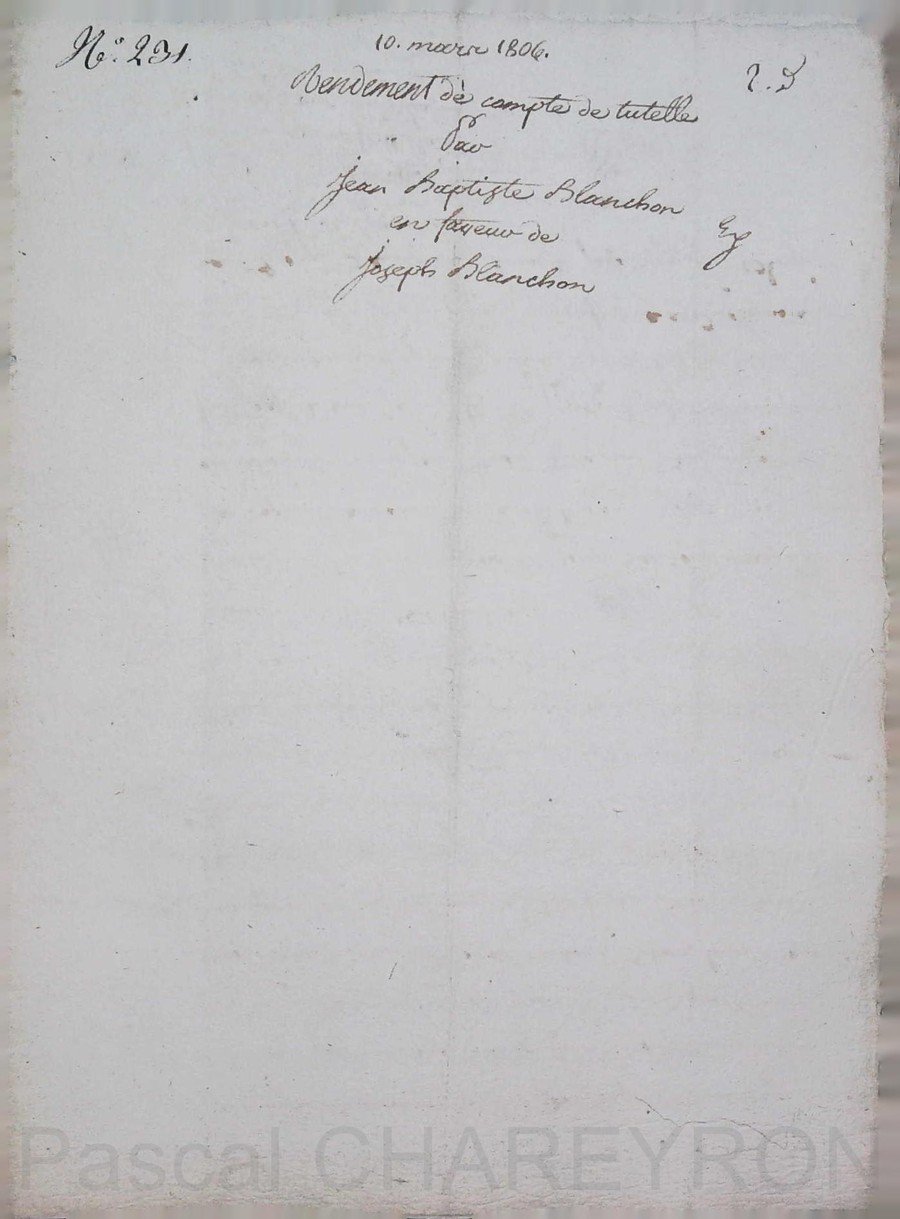 N.° 231.
10. mars 1806.
Rendement de compte de tutelle
Par
Jean Baptiste Blanchon
en faveur de
Joseph Blanchon
Pascal CHAREYRON